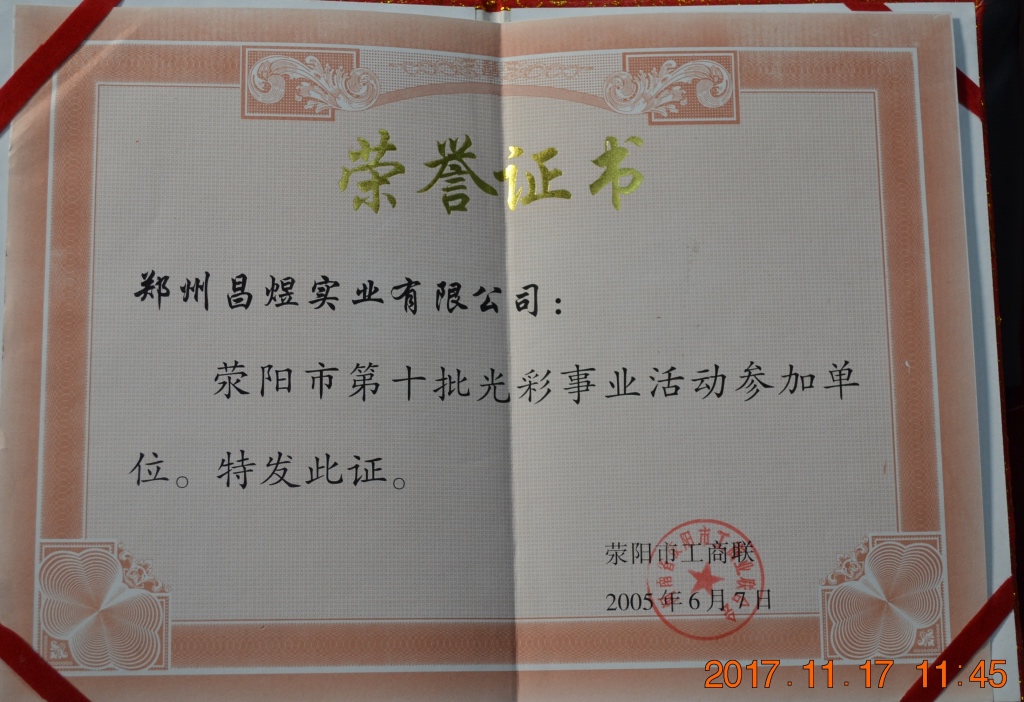 荣誉证书
郑州昌煜实业有限公司：
荥阳市第十批光彩事业活动参加单
位。特发此证。
荥阳市工商联
2005年6月7日
2017.11.17 11:45